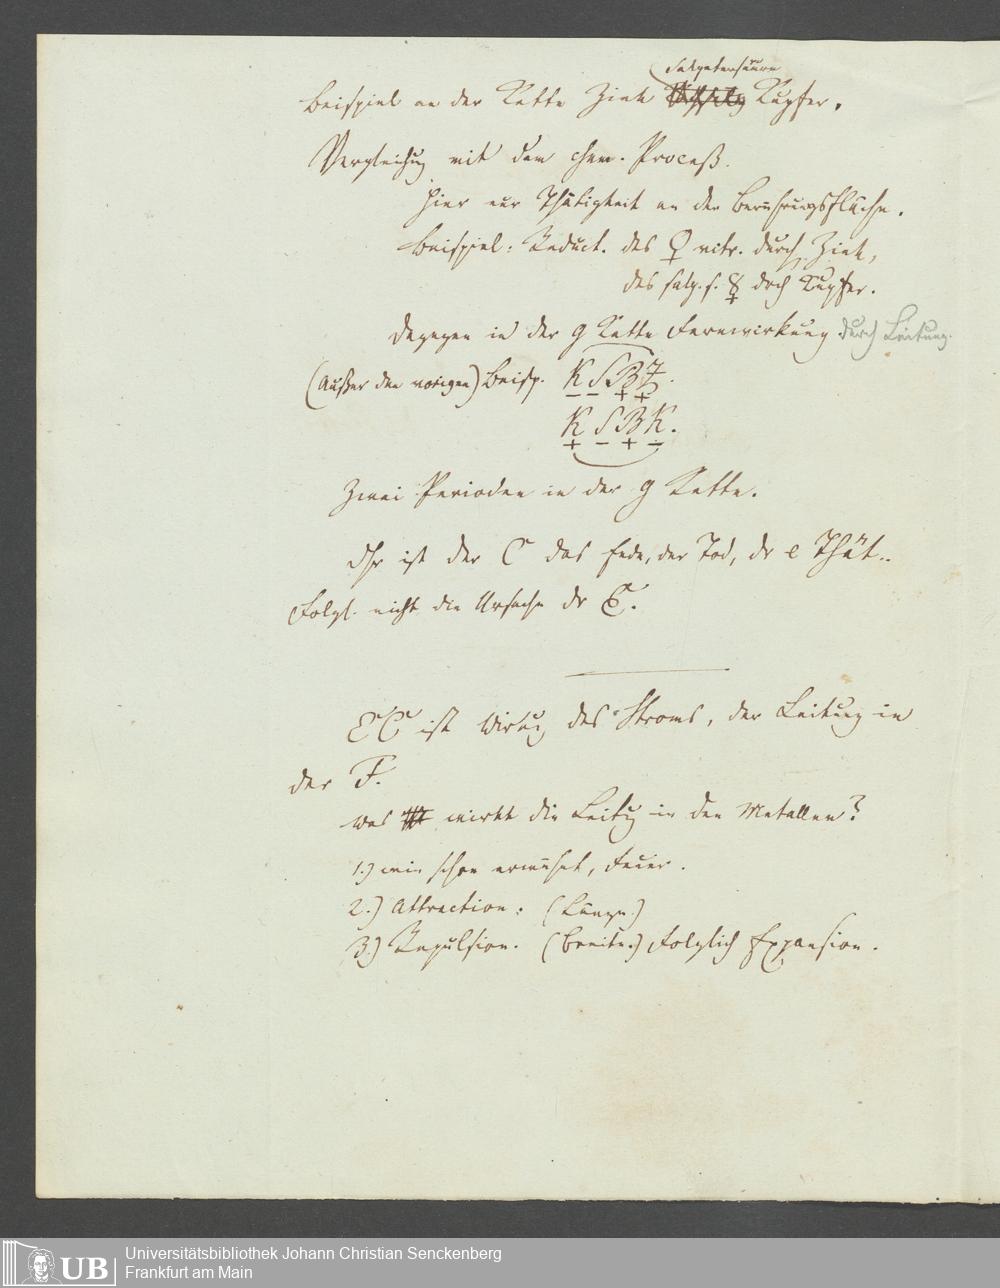 Salpetersäure
Beispiel an der Kette Zink Kupfer.
Vergleichug mit dem chem. Proceß.
Hier nur Thätigkeit an der Berührungsfläche.
Beispiel: Reduct. des ♀ nitr. durch Zink,
des salp. s. ☿ dch Kupfer.
Dagegen in der g Kette Fernwirkung durch Leitung.
(Außer den vorigen) Beisp. K S B Z.
− − + +
K S B K.
+ − + −
Zwei Perioden in der g Kette.
Ihr ist der C das Ende, der Tod, dr e Thät..
Folgl. nicht die Ursache dr E.
EC ist Wirkug des Stroms, der Leitung in
der F.
Was wirkt die Leitug in den Metallen?
1.) wie schon erwähnt, Feuer.
2.) Attraction: (Länge.)
3.) Repulsion. (Breite.) Folglich Expansion.
UB
Universitätsbibliothek Johann Christian Senckenberg
Frankfurt am Main